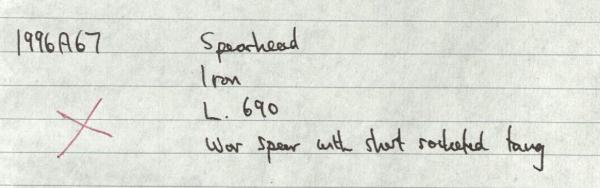 1996A67 Spearhead
Iron
L. 690
War spear with short socketed tang